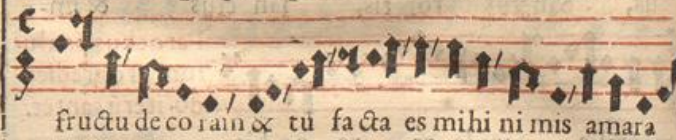 fructu de co ram & tu facta es mihi ni mis amara